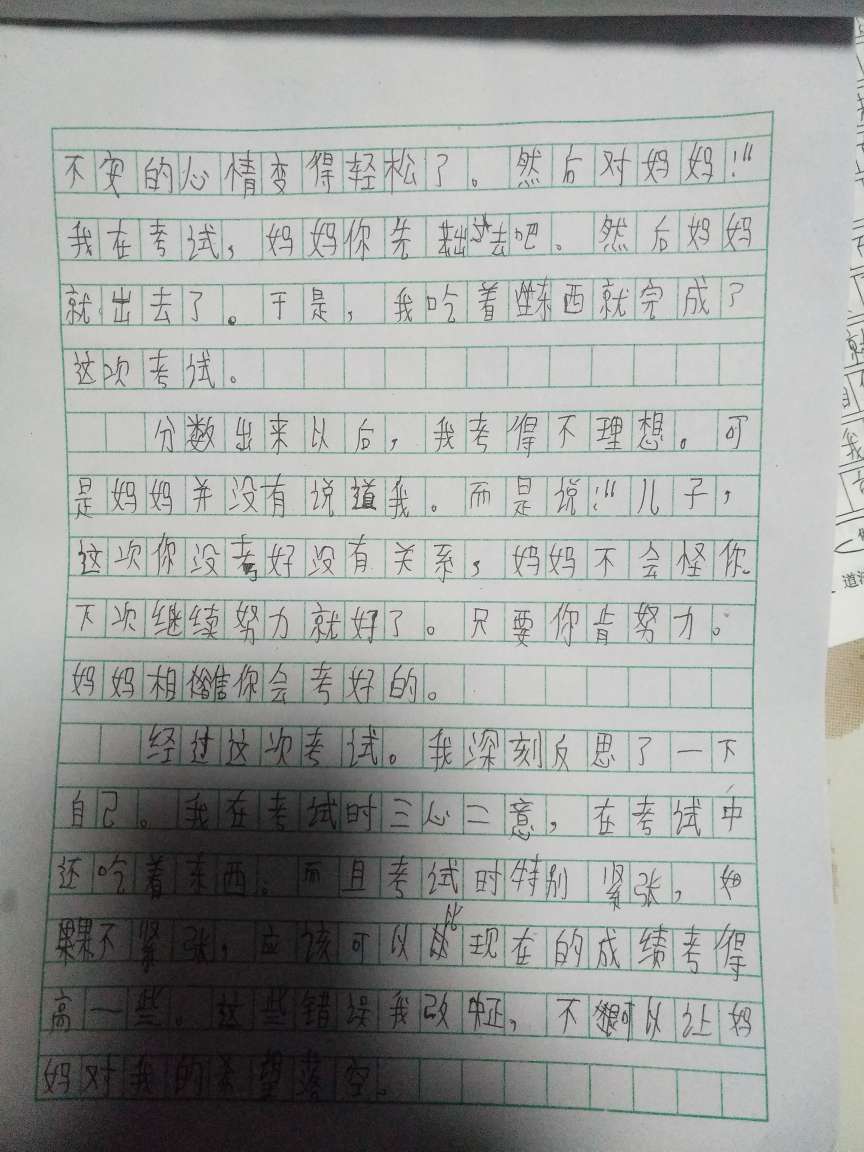 不安的心情变得轻松了。然后对妈妈:"
我在考试,妈妈你先出去吧。然后妈妈
就出去了。于是,我吃着东西就完成了
这次考试。
分数出来以后,我考得不理想。可
是妈妈并没有说道我。而是说:"儿子,
这次你没考好没有关系,妈妈不会怪你。
下次继续努力就好了。只要你肯努力。
妈妈相信你会考好的。
经过这次考试。我深刻反思了一下
自己。我在考试时三心二意,在考试中
还吃着东西。而且考试时特别紧张,如
果不紧张,应该可以比现在的成绩考得
高一些。这些错误我改正,不可以让妈
妈对我的希望落空。